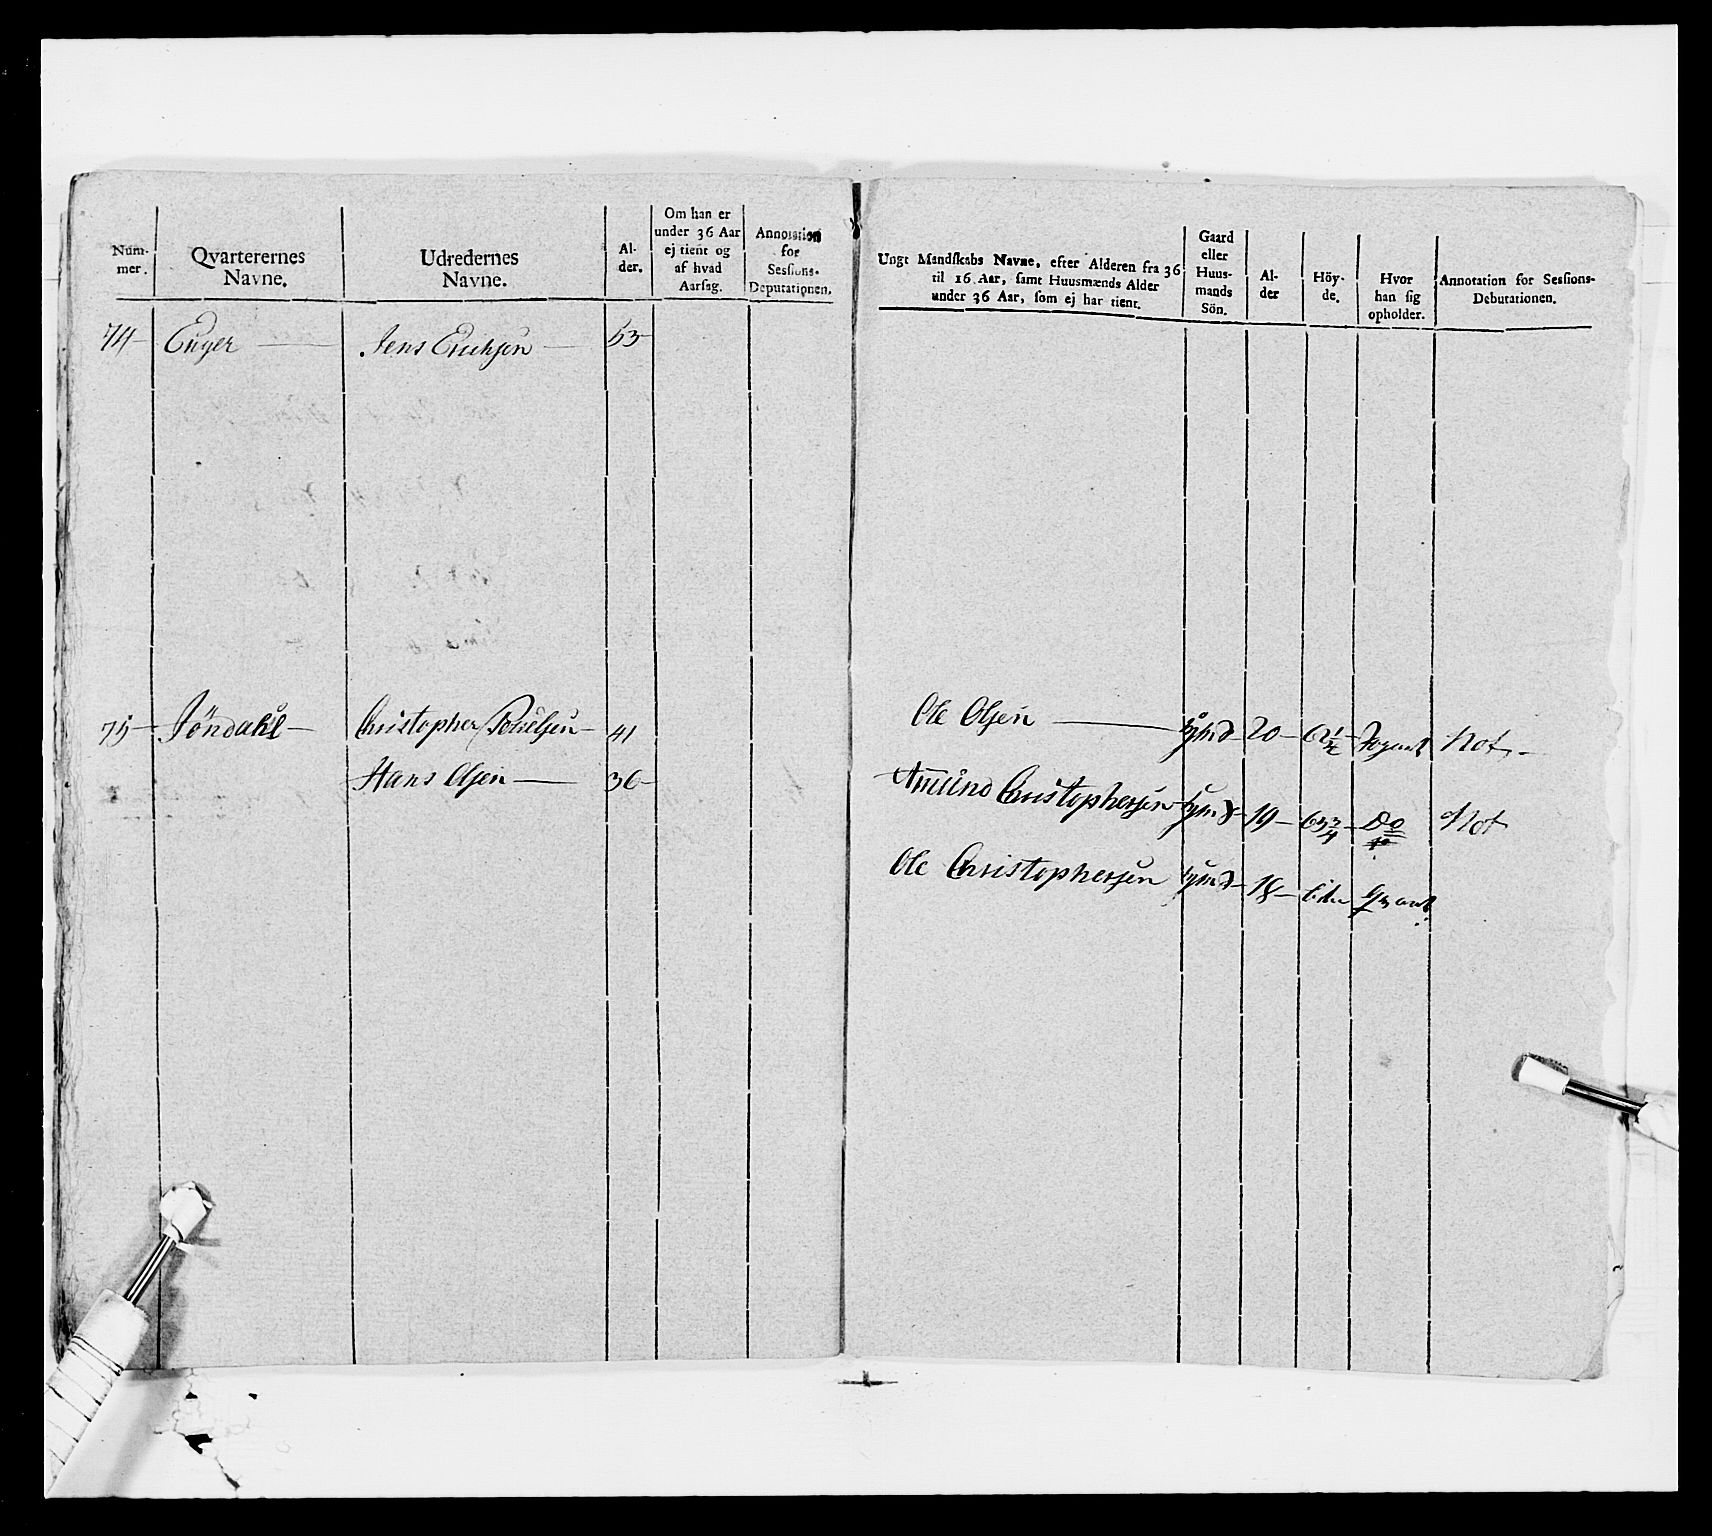 Num-
mer.
Qvarterernes
Navne.
Udredernes
Navne.
Al-
der.
Om han er
under 36 Aar
ej tient og
af hvad
Aarsag.
Annotation
for
Sessions-
Deputationen.
74 Enger Jens Erichsen 53
75 Jöndahl Christopher 41
Hans Olsen 36
Ungt Mandskabs Navne, efter Alderen fra 36
til 16 Aar, samt Huusmænds Alder
under 36 Aar, som ej har tient.
Gaard
eller
Huus-
mands
Sön.
Al-
der
Höy-
de.
Hvor
han sig
opholder.
Annotation for Sessions-
Debutationen.
Ole Olsen 20 Not
Amund Christophersen 19 63 3/4 Do Not
Ole Christophersen 18